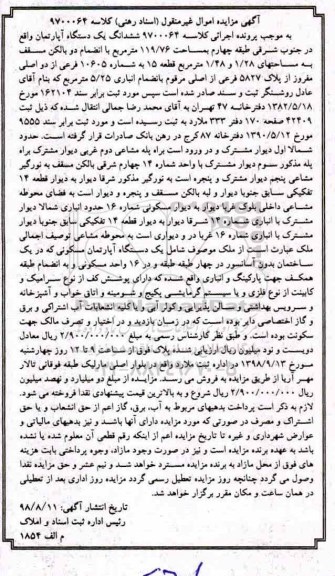 آگهی مزایده اموال غیرمنقول (اسناد رهنی) کلاسه ۹۷۰۰۰۶۴
به موجب پرونده اجرائی کلاسه ۹۷۰۰۰۶۴ ششدانگ یک دستگاه آپارتمان واقع
در جنوب شرقی طبقه چهارم بمساحت ۱۱۹/۷۶ مترمربع با انضمام دو بالکن مسقف
به مساحتهای ۱/۲۸ و ۱/۴۸ مترمربع قطعه ۱۵ به شماره ۱۰۶۰۵ فرعی از دو اصلی
مفروز از پلاک ۵۸۲۷ فرعی از اصلی مرقوم بانضمام انباری ۵/۲۵ مترمربع که بنام آقای
عادل روشنگر ثبت و سند صادر شده است سپس مورد ثبت برابر سند ۱۶۲۱۰۴ مورخ
۱۳۸۲/۵/۱۸ دفترخانه ۴۷ تهران به آقای محمد رضا جمالی انتقال شده که ذیل ثبت
۲۲۴۰۹ صفحه ۱۷۰ دفتر ۳۳۳ ملارد به ثبت رسیده است و مورد ثبت برابر سند ۹۵۵۵
مورخ ۱۳۹۰/۵/۱۲ دفترخانه ۸۷ کرج در رهن بانک صادرات قرار گرفته است. حدود
شمالا اول دیوار مشترک و در ورود است براه پله مشاعی دوم غربی دیوار مشترک براه
پله مذکور سوم دیوار مشترک با واحد شماره ۱۴ چهارم شرقی بالکن مسقف به نورگیر
مشاعی پنجم دیوار مشترک و پنجره است به نورگیر مذکور شرقا دیوار به دیوار قطعه ۱۴
تفکیکی سابق جنوبا دیوار و لبه بالکن مسقف و پنجره و دیوار است به فضای محوطه
مشاعی داخلی بلوک غربا دیوار به دیوار مسکونی شماره ۱۶ حدود انباری شمالا دیوار
مشترک با انباری شماره ۱۴ شرقا دیوار به دیوار قطعه ۱۴ تفکیکی سابق جنوبا دیوار
مشترک با انباری شماره ۱۶ غربا در و دیواری است به محوطه مشاعی توصیف اجمالی
ملک عبارت است از ملک موصوف شامل یک دستگاه آپارتمان مسکونی که در یک
ساختمان بدون آسانسور در چهار طبقه طبقه و در ۱۶ واحد مسکونی و به انضمام طبقه
همکف جهت پارکینگ و انباری واقع شده که دارای پوشش کف از نوع سرامیک و
کابینت از نوع فلزی و با سیستم گرمایشی پکیج و شومینه و اتاق خواب و آشپزخانه
و سرویس بهداشتی و سالن پذیرایی و کولر آبی و با کلیه انشعابات آب اشتراکی و برق
و گاز اختصاصی دایر بوده است که در زمان بازدید و در اختیار و تصرف مالک جهت
سکونت بوده است. و طبق نظر کارشناس رسمی به مبلغ ۲/۹۰۰/۰۰۰/۰۰۰ ریال معادل
دویست و نود میلیون ریال ارزیابی شده پلاک فوق از ساعت ۹ تا ۱۲ روز چهارشنبه
مورخ ۱۳۹۸/۹/۱۳ در اداره ثبت ملارد واقع در بلوار اصلی مارلیک طبقه فوقانی تالار
مهر آریا از طریق مزایده به فروش می رسد. مزایده از مبلغ دو میلیارد و نهصد میلیون
ریال ۲/۹۰۰/۰۰۰/۰۰۰ ریال شروع و به بالاترین قیمت پیشنهادی نقدا فروخته می شود.
لازم به ذکر است پرداخت بدهیهای مربوط به آب، برق، گاز اعم از حق انشعاب و یا حق
اشتراک و مصرف در صورتی که مورد مزایده دارای آنها باشد و نیز بدهیهای مالیاتی و
عوارض شهرداری و غیره تا تاریخ مزایده اعم از اینکه رقم قطعی آن معلوم شده یا نشده
باشد به عهده برنده مزایده است و نیز در صورت وجود مازاد، وجوه پرداختی بابت هزینه
های فوق از محل مازاد به برنده مزایده مسترد خواهد شد و نیم عشر و حق مزایده نقدا
وصول می گردد چنانچه روز مزایده تعطیل رسمی گردد مزایده روز اداری بعد از تعطیلی
در همان ساعت و مکان مقرر برگزار خواهد شد.
تاریخ انتشار آگهی: ۹۸/۸/۱۱
رئیس اداره ثبت اسناد و املاک
م الف ۱۸۵۴